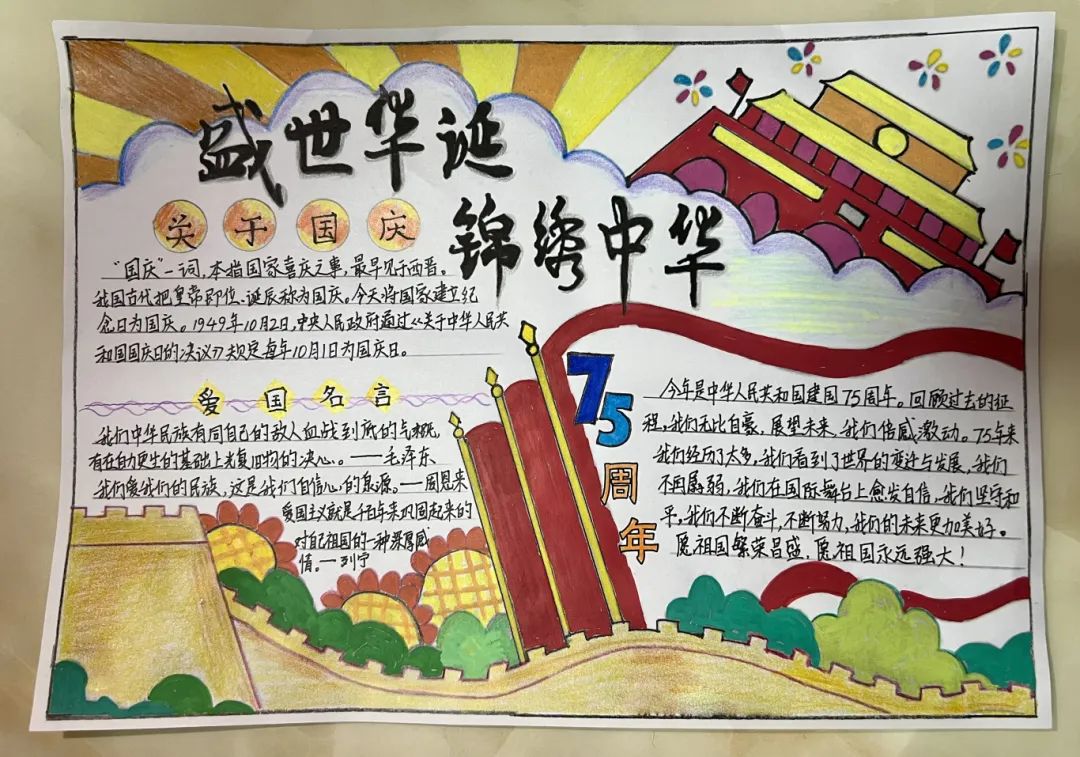 盛世华诞
锦绣中华
关于国庆
"国庆"一词,本指国家喜庆之事,最早见于西晋。
我国古代把皇帝即位、诞辰称为国庆。今天将国家建立纪
念日为国庆。1949年10月2日,中央人民政府通过《关于中华人民共
和国国庆日的决议》规定每年10月1日为国庆日。
爱国名言
我们中华民族有同自己的敌人血战到底的气概,
有在自力更生的基础上光复旧物的决心。——毛泽东
我们爱我们的民族,这是我们自信心的泉源。——周恩来
爱国主义就是千百年来巩固起来的
对自己祖国的一种深厚感
情。——列宁
75
周
年
今年是中华人民共和国建国75周年。回顾过去的征
程,我们无比自豪,展望未来,我们倍感激动。75年来
我们经历了太多,我们看到了世界的变迁与发展,我们
不再孱弱,我们在国际舞台上愈发自信,我们坚守和
平,我们不断奋斗,不断努力,我们的未来更加美好。
愿祖国繁荣昌盛,愿祖国永远强大!